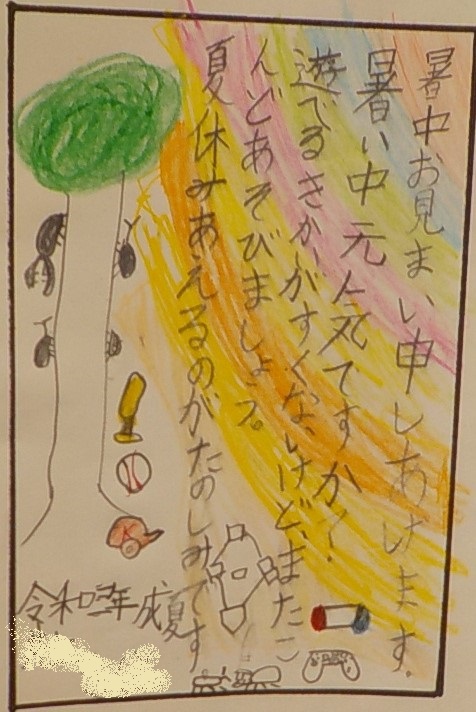 暑中お見まい申しあげます。
暑い中元気ですか?
遊でるきかいがすくないけど、またこ
んどあそびましょう。
夏休みあえるのがたのしみです
令和三年成夏